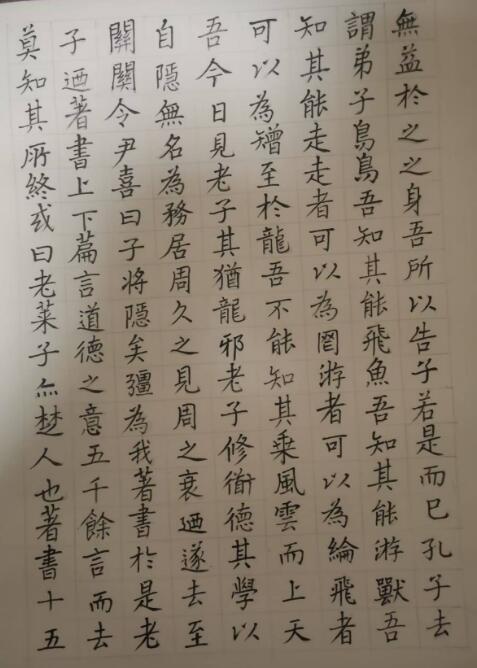 無益於之之身吾所以告子若是而已孔子去
謂弟子鳥鳥吾知其能飛魚吾知其能游獸吾
知其能走走者可以為罔游者可以為綸飛者
可以為矰至於龍吾不能知其乗風雲而上天
吾今日見老子其猶龍邪老子修衜德其學以
自隱無名為務居周久之見周之衰迺遂去至
關關令尹喜曰子将隱矣彊為我著書於是老
子迺著書上下篇言道德之意五千餘言而去
莫知其所終或曰老莱子亦楚人也著書十五